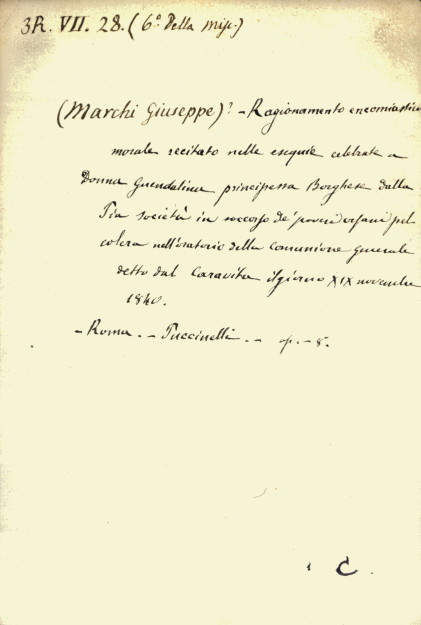 3R. VII. 28. (6º della Misc.)
(Marchi Giuseppe)? - Ragionamento encomiastico
morale recitato nelle esequie celebrate a
Donna Guendalina principessa Borghese dalla
Pia società in soccorso de' poveri orfani pel
colera nell'oratorio della comunione generale
detto del Caravita il giorno XIX novembre
1840.
- Roma. - Puccinelli. - op. - 8.
C.